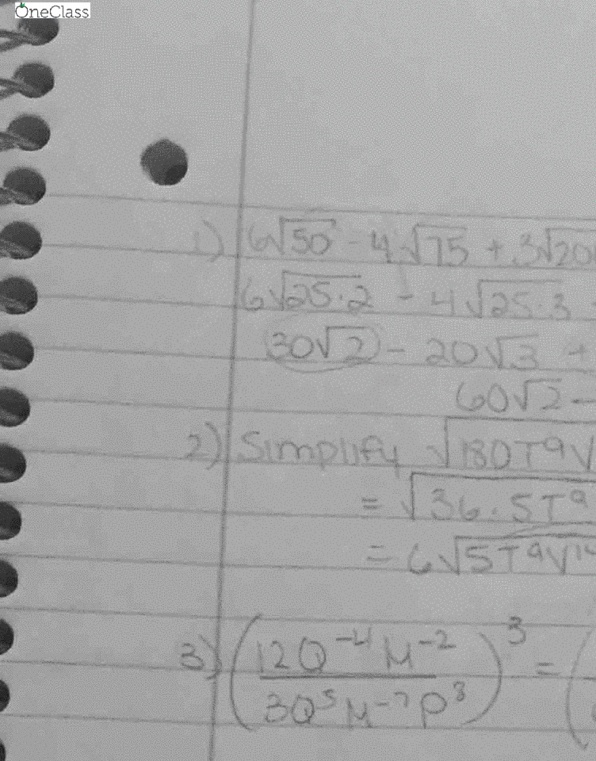 OneClass
1) 6√50 - 4√75 + 3√20
6√25·2 - 4√25·3
30√2 - 20√3 +
60√2 -
2) Simplify √180T⁹V
= √36·5T⁹
= 6√5T⁹V¹⁴
3) (12Q⁻⁴M⁻² / 3Q⁵M⁻⁷P⁸)³ = (